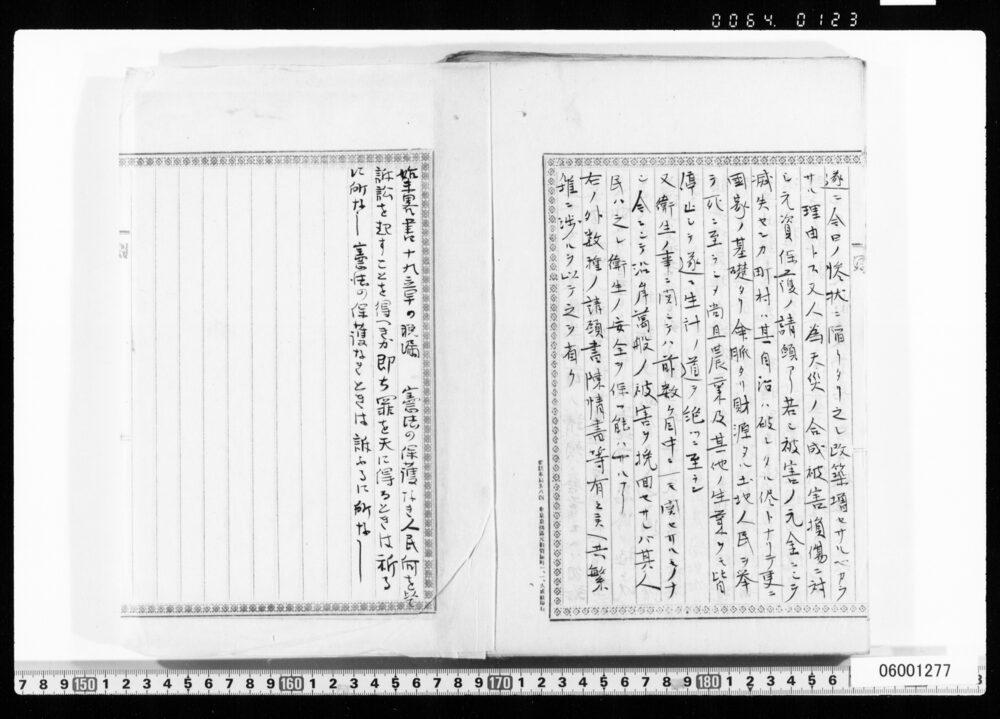 0064 0123
遂ニ今日ノ惨状ニ陥リタリ之レ改築増セサルベカラ
サル理由トス又人為天災ノ合成被害損傷ニ対
シ元資保復ノ請願アリ若シ被害ノ元金ニシテ
滅失センカ町村ハ其自治ハ破レタル侭トナリテ更ニ
国家ノ基礎タリ命脈タリ財源タル土地人民ヲ挙
テ死ニ至ラシメ尚且農業及其他ノ生業ヲモ皆
停止シテ遂ニ生計ノ道ヲ絶ツニ至ラン
又衛生ノ事ニ関シテハ前数ケ目中ニ一モ関セサルモノナ
シ今ニシテ沿岸万般ノ被害ヲ挽回セサレバ其人
民ハ之レ衛生ノ安全ヲ保ツ能ハサルナリ
右ノ外数種ノ請願書陳情書等有之
雑ニ渉ルヲ以テ之ヲ省ク
十九三早の脱漏 憲法の保護なき人民何を
訴訟を起すことを得べきか即ち罪を天に得るときは祈る
に所なし 憲法の保護なきときは訴ふるに所なし
7 8 9 150 1 2 3 4 5 6 7 8 9 160 1 2 3 4 5 6 7 8 9 170 1 2 3 4 5 6 7 8 9 180 1 2 3 4 5 6
06001277